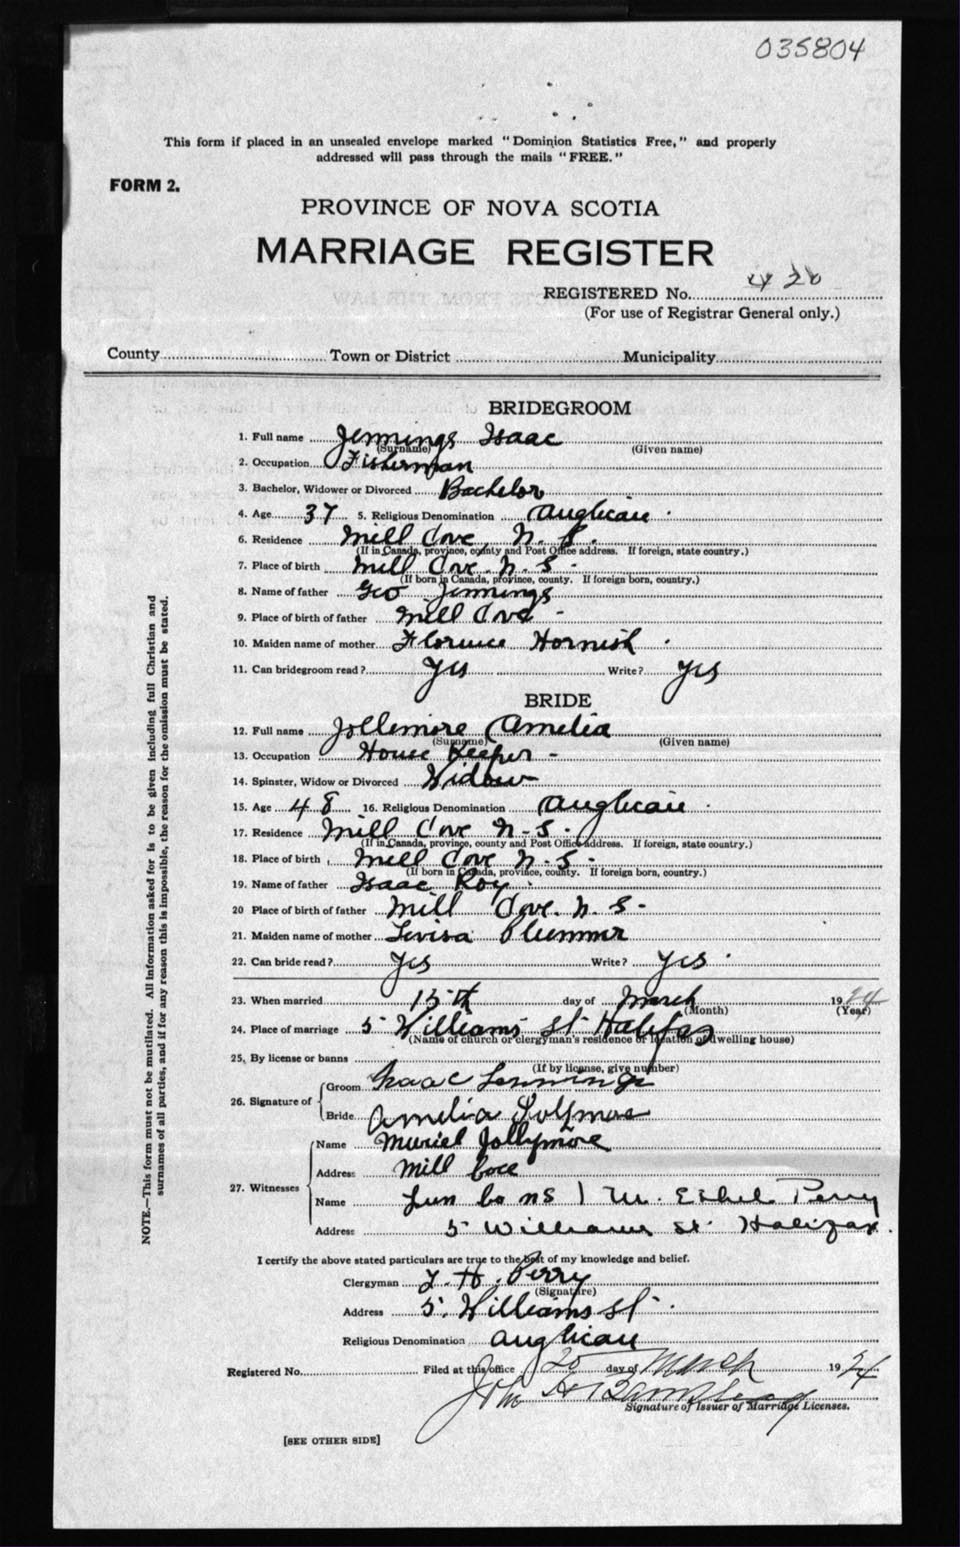 035804
This form if placed in an unsealed envelope marked "Dominion Statistics Free," and properly
addressed will pass through the mails "FREE."
FORM 2.
PROVINCE OF NOVA SCOTIA
MARRIAGE REGISTER
REGISTERED No. 420
(For use of Registrar General only.)
County Town or District Municipality
BRIDEGROOM
1. Full name Jennings Isaac
(Surname) (Given name)
2. Occupation Fisherman
3. Bachelor, Widower or Divorced Bachelor
4. Age 37 5. Religious Denomination Anglican
6. Residence Mill Cove N. S.
(If in Canada, province, county and Post Office address. If foreign, state country.)
7. Place of birth Mill Cove. N. S -
(If born in Canada, province, county. If foreign born, country.)
8. Name of father Geo Jennings
9. Place of birth of father Mill Cove -
10. Maiden name of mother Florence Hornish
11. Can bridegroom read? Yes Write? Yes
BRIDE
12. Full name Jollemore Amelia
(Surname) (Given name)
13. Occupation House Keeper -
14. Spinster, Widow or Divorced Widow
15. Age 48 16. Religious Denomination Anglican
17. Residence Mill Cove N-S.
(If in Canada, province, county and Post Office address. If foreign, state country.)
18. Place of birth Mill Cove N. S -
(If born in Canada, province, county. If foreign born, country.)
19. Name of father Isaac Roy
20 Place of birth of father Mill Cove. N. S -
21. Maiden name of mother Levisa Plummer
22. Can bride read? Yes Write? Yes
23. When married 15th day of March 1924
(Month) (Year)
24. Place of marriage 5 Williams St Halifax
(Name of church or clergyman's residence or location of dwelling house)
25, By license or banns
(If by license, give number)
26. Signature of Groom Isaac Jennings
Bride Amelia Jolymore
27. Witnesses Name Muriel Jollymore
Address Mill Cove
Name Lun Co NS | M. Ethel Perry
Address 5 Williams St Halifax.
I certify the above stated particulars are true to the best of my knowledge and belief.
Clergyman H. Perry
(Signature)
Address 5. Williams St.
Religious Denomination Anglican
Registered No. Filed at this office 20 day of March 1924
John
Signature of Issuer of Marriage Licenses.
[SEE OTHER SIDE]
NOTE.—This form must not be mutilated. All information asked for is to be given including full Christian and
surnames of all parties, and if for any reason this is impossible, the reason for the omission must be stated.